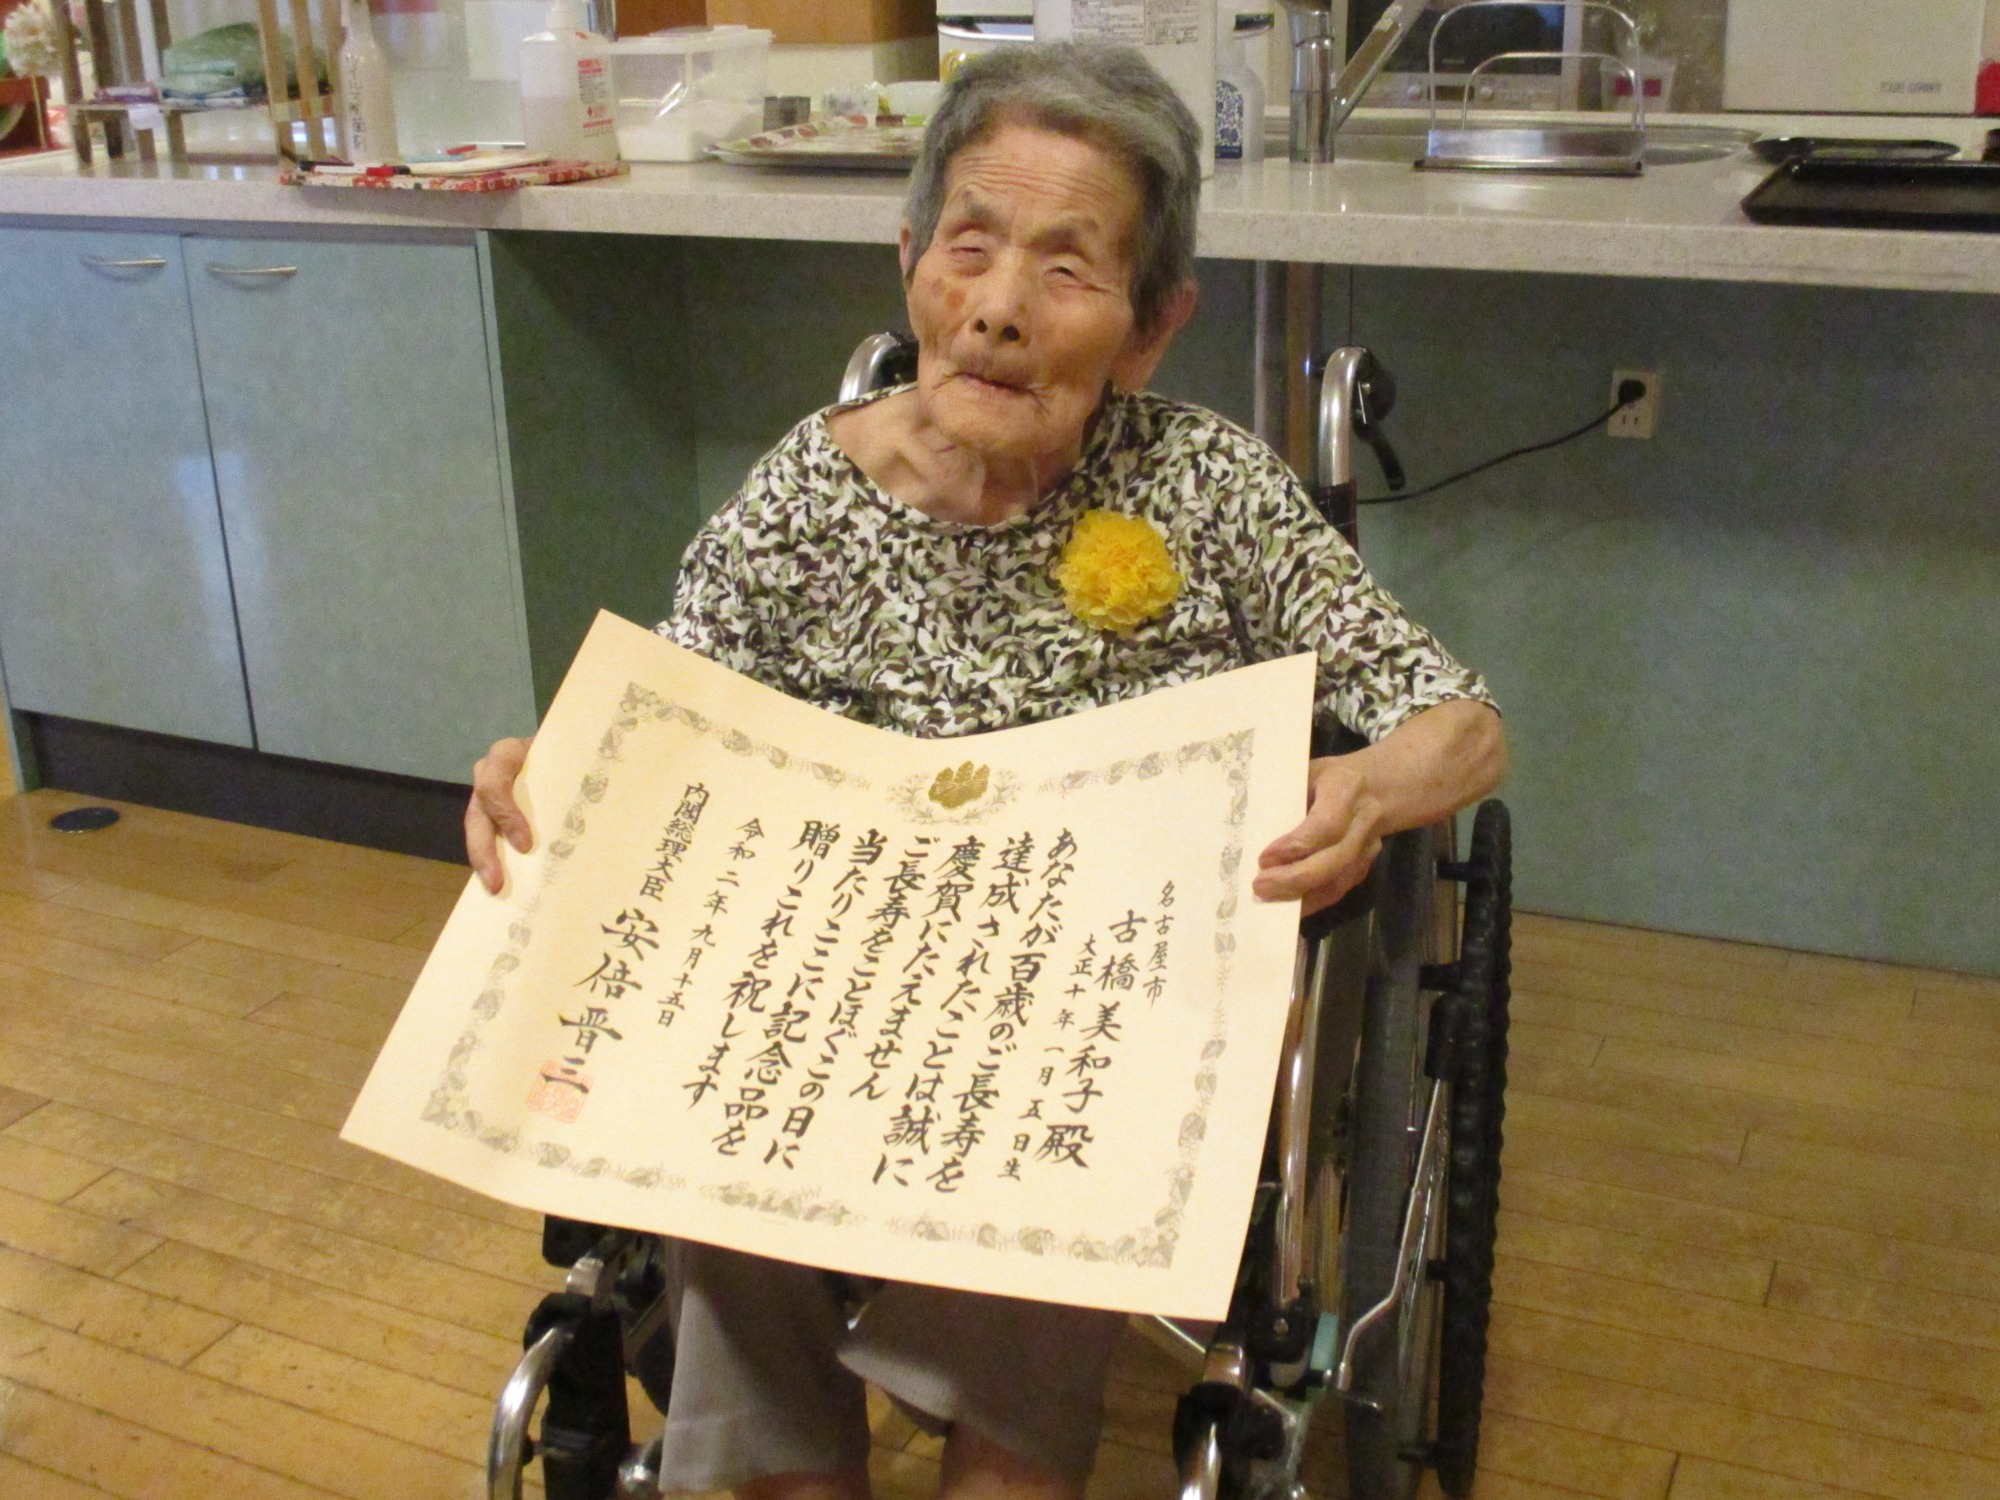 名古屋市
古橋美和子殿
大正十年一月五日生
あなたが百歳のご長寿を
達成されたことは誠に
慶賀にたえません
ご長寿をことほぐこの日に
当たりここに記念品を
贈りこれを祝します
令和二年九月十五日
内閣総理大臣 安倍晋三